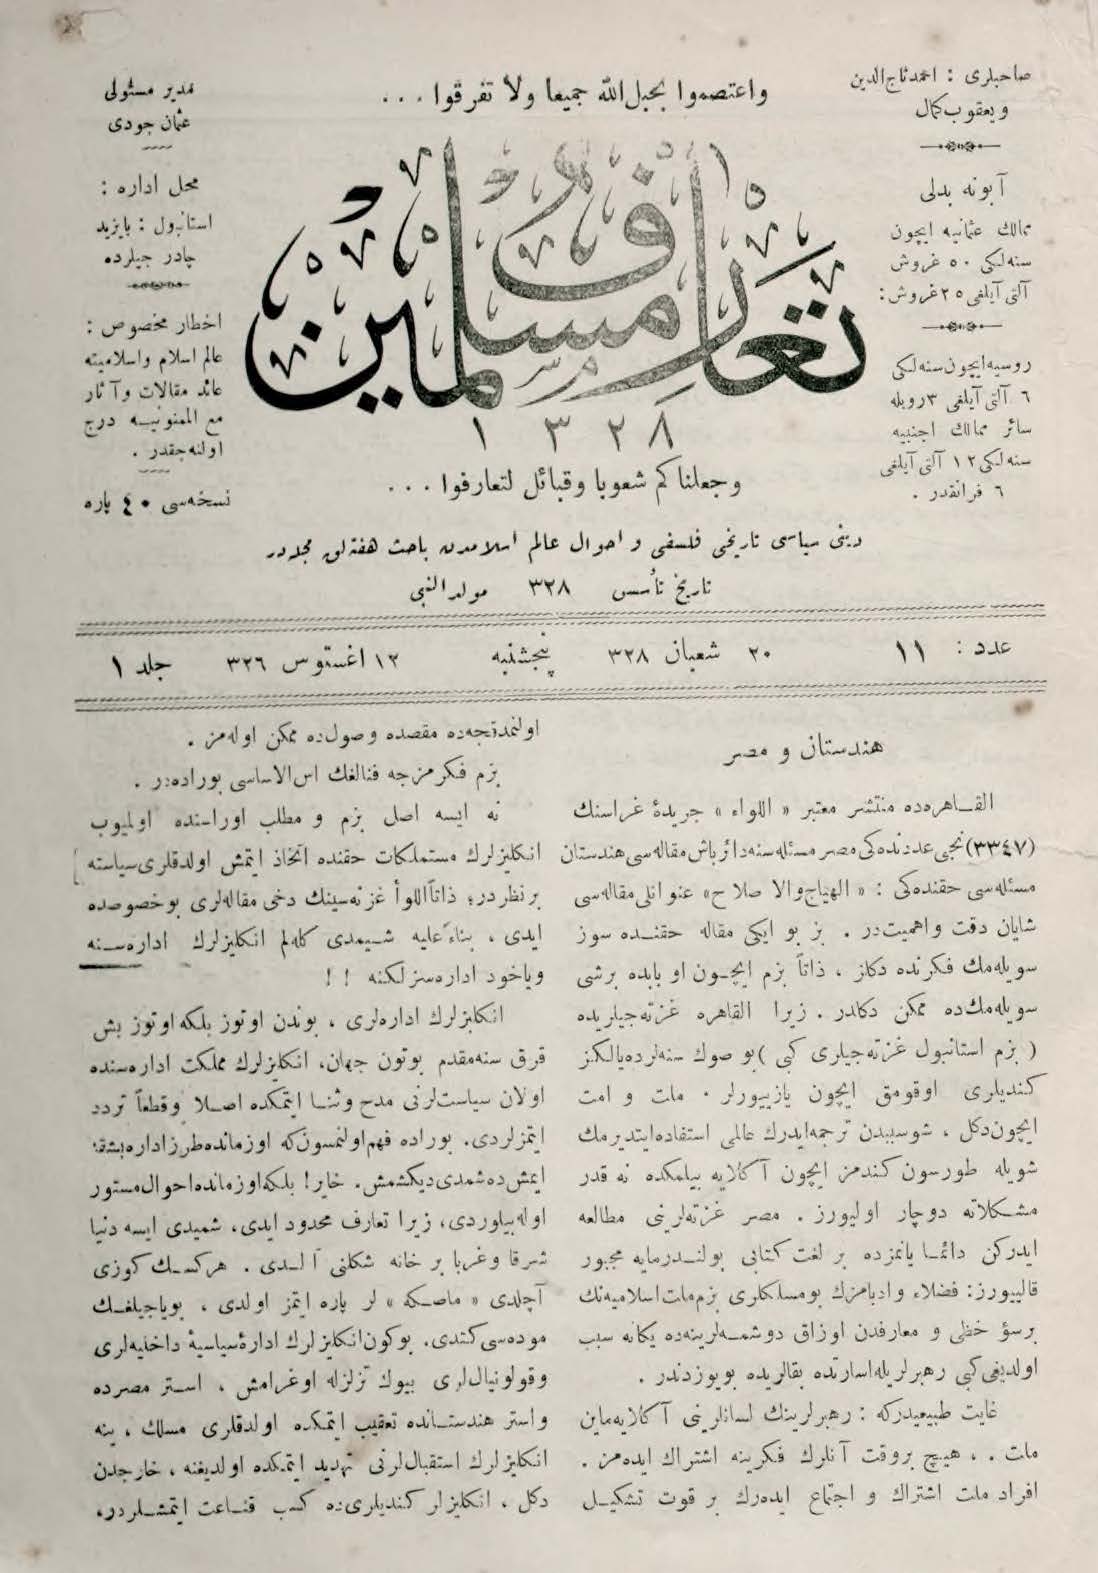 صاحبلری : احمد تاج‌الدین
و یعقوب كمال
آبونه بدلی
ممالك عثمانیه ایچون
سنه‌لكی ٥٠ غروش
آلتی آیلغی ٢٥ غروش :
روسیه ایچون سنه‌لكی
٦ آلتی آیلغی ٣ روبله
سائر ممالك اجنبیه
سنه‌لكی ١٢ آلتی آیلغی
٦ فرانقدر .
واعتصموا بحبل الله جمیعا ولا تفرقوا . . .
تعارف مسلمین
١٣٢٨
وجعلناكم شعوبا وقبائل لتعارفوا . . .
مدیر مسئولی
عثمان جودی
محل اداره :
استانبول : بایزید
چادر جیلرده
اخطار مخصوص :
عالم اسلام واسلامیته
عائد مقالات وآثار
مع الممنونیـه درج
اولنه‌جقدر .
نسخه‌سی ٤٠ پاره
دینی سیاسی تاریخی فلسفی و احوال عالم اسلامدن باحث هفته‌لق مجله‌در
تاریخ تأسس ٣٢٨ مولد النبی
عدد : ١١ ٢٠ شعبان ٣٢٨ پنجشنبه ١٢ اغستوس ٣٢٦ جلد ١
هندستان و مصر
القـاهره‌ده منتشر معتبر « اللواء » جریدۀ غراسنك
(٣٣٤٧)نجی عددنده‌كی مصر مسئله‌سنه دائر باش مقاله‌سی هندستان
مسئله‌سی حقنده‌كی : « الهیاج والا صلاح» عنوانلی مقاله‌سی
شایان دقت واهمیت‌در . بز بو ایكی مقاله حقنـده سوز
سویله‌مك فكرنده دكلز ، ذاتاً بزم ایچـون او بابده برشی
سویله‌مك‌ده ممكن دكلدر . زیرا القاهره غزته‌جیلریده
( بزم استانبول غزته‌جیلری كبی )بو صوك سنه‌لرده‌یالكز
كندیلری اوقومق ایچون یازییورلر . ملت و امت
ایچون‌دكل ، شوسببدن ترجمه‌ایدرك عالمی استفاده‌ایتدیرمك
شویله طورسون كندمز ایچون آكلایه بیلمكده نه قدر
مشـكلاته دوچار اولیورز . مصر غزته‌لرینی مطالعه
ایدركن دائمـا یانمزده بر لغت كتابی بولنـدرمایه مجبور
قالییورز: فضلاء وادبامزك بومسلكلری بزم‌ملت اسلامیه‌نك
برسؤ حظی و معارفدن اوزاق دوشمـه‌لرینه‌ده یكانه سبب
اولدیغی كبی رهبرلریله‌اسارتده بقالریده بویوزدندر .
غایت طبیعیدركه : رهبرلرینك لسانلرینی آكلایه‌ماین
ملت . ، هیـچ بروقت آنلرك فكرینه اشتراك ایده‌من .
افراد ملت اشتراك و اجتماع ایده‌رك بر قوت تشكیـل
اولنمدقجه‌ده مقصده وصول‌ده ممكن اوله‌من .
بزم فكرمزجه فنالغك اس‌الاساسی بوراده‌در .
نه ایسه اصل بزم و مطلب اوراسـنده اولمیوب
انكلیزلرك مستملكات حقنده اتخاذ ایتمش اولدقلری سیاسته
برنظردر؛ ذاتاً اللوأ غزته‌سینك دخی مقاله‌لری بوخصوصده
ایدی ، بناءً‌علیه شـیمدی كله‌لم انكلیزلرك اداره‌سـنه
ویاخود اداره‌سزلكنه ! !
انكلیزلرك اداره‌لری ، بوندن اوتوز بلكه‌اوتوز بش
قرق سنه‌مقدم بوتون جهان، انكلیزلرك مملكت اداره‌سنده
اولان سیاست‌لرنی مدح وثنـا ایتمكده اصـلا وقطعاً تردد
ایتمزلردی. بوراده فهم‌اولنمسون‌كه اوزمانده‌طرزاداره‌بشقه
ایمش‌ده‌شمدی‌دیكشمش. خایر! بلكه‌اوزمانده‌احوال‌مستور
اوله‌بیلوردی، زیرا تعارف محدود ایدی، شمیدی ایسه دنیا
شرقا وغربا بر خانه شكلنی آلـدی . هركسـك كوزی
آچلدی « ماصـكه » لر پاره ایتمز اولدی ، بویاجیلغـك
موده‌سی كتدی. بوكون‌انكلیزلرك ادارۀسیاسیۀ داخلیه‌لری
وقولونیال‌لری بیوك تزلزله اوغرامش ، اسـتر مصرده
واستر هندستـانده تعقیب ایتمكده اولدقلری مسلك ، ینه
انكلیزلرك استقبال‌لرنی تهدید ایتمكده اولدیغنه ، خارجدن
دكل ، انكلیزلر كندیلری‌ده كسب قنـاعت ایتمشـلردر،